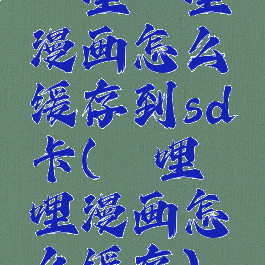 哩 哩
漫画怎么
缓存到sd
卡( 哩
哩漫画怎
么缓存)